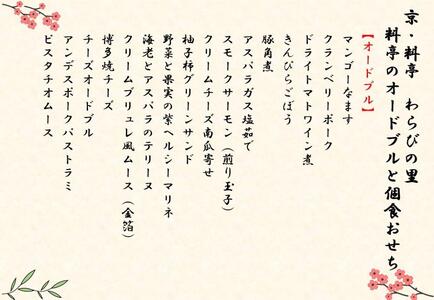 京・料亭 わらびの里
料亭のオードブルと個食おせち
【オードブル】
マンゴーなます
クランベリーポーク
ドライトマトワイン煮
きんぴらごぼう
豚角煮
アスパラガス塩茹で
スモークサーモン（煎り玉子）
クリームチーズ南瓜寄せ
柚子柿グリーンサンド
野菜と果実の紫ヘルシーマリネ
海老とアスパラのテリーヌ
クリームブリュレ風ムース（金箔）
博多焼チーズ
チーズオードブル
アンデスポークパストラミ
ピスタチオムース